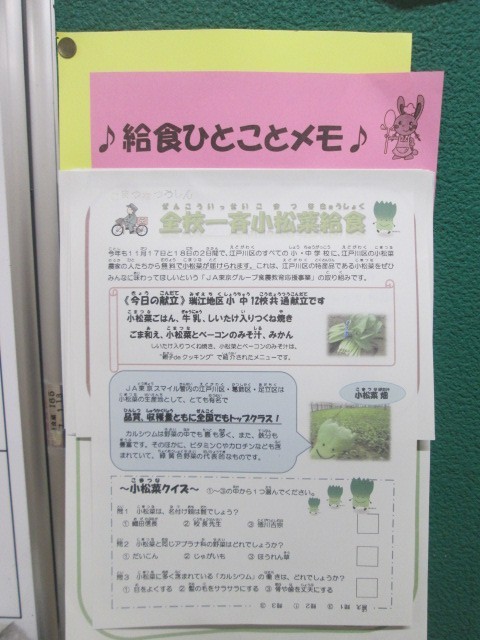 ♪給食ひとことメモ♪
全校一斉小松菜給食
今年も11月17日と18日の2日間で、江戸川区のすべての小・中学校に、江戸川区の小松菜
農家の人たちから無料で小松菜が届けられます。これは、江戸川区の特産品である小松菜をぜひ
みんなに味わってほしいという「JA東京グループ食農教育応援事業」の取り組みです。
《今日の献立》瑞江地区小中12校共通献立です
小松菜ごはん、牛乳、しいたけ入りつくね焼き
ごま和え、小松菜とベーコンのみそ汁、みかん
しいたけ入りつくね焼き、小松菜とベーコンのみそ汁は、
"親子deクッキング"で紹介されたメニューです。
JA東京スマイル管内の江戸川区・葛飾区・足立区は
小松菜の生産地として、とても有名で
品質、収穫量ともに全国でもトップクラス!
カルシウムは野菜の中でも最も多く、また、鉄分も
豊富です。そのほかに、ビタミンCやカロテンなども含
まれていて、緑黄色野菜の代表的なものです。
小松菜畑
～小松菜クイズ～ ①～③の中から1つ選んでください。
問1 小松菜は、名付け親は誰でしょうか?
①織田信長 ②校長先生 ③徳川吉宗
問2 小松菜と同じアブラナ科の野菜はどれでしょうか?
①だいこん ②じゃがいも ③ほうれん草
問3 小松菜に多く含まれている「カルシウム」の働きは、どれでしょうか?
①目をよくする ②髪の毛をサラサラにする ③骨や歯を丈夫にする